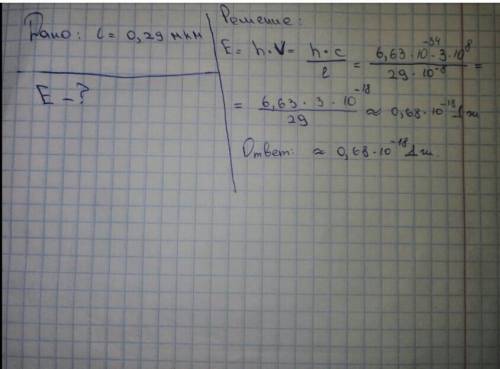 Дано: l = 0,29 мкм
E - ?
Решение:
E = h · ν = h · c / l = 6,63 · 10^-34 · 3 · 10^8 / 29 · 10^-8 =
= 6,63 · 3 · 10^-18 / 29 ≈ 0,68 · 10^-18 Дж
Ответ: ≈ 0,68 · 10^-18 Дж